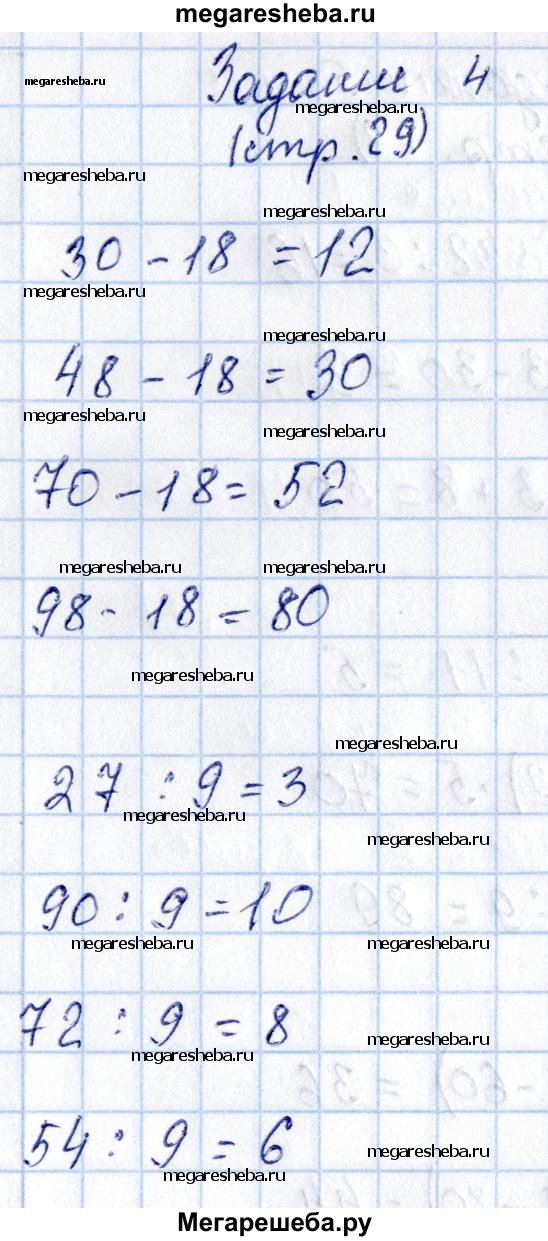 megaresheba.ru
Задание 4
megaresheba.ru
megaresheba.ru
(стр. 29)
megaresheba.ru
megaresheba.ru
30 - 18 = 12
megaresheba.ru
megaresheba.ru
48 - 18 = 30
megaresheba.ru
megaresheba.ru
70 - 18 = 52
megaresheba.ru megaresheba.ru
98 - 18 = 80
megaresheba.ru
megaresheba.ru
27 : 9 = 3
megaresheba.ru
megaresheba.ru
90 : 9 = 10
megaresheba.ru megaresheba.ru
72 : 9 = 8
megaresheba.ru
megaresheba.ru
54 : 9 = 6
megaresheba.ru
megaresheba.ru
Мегарешеба.ру